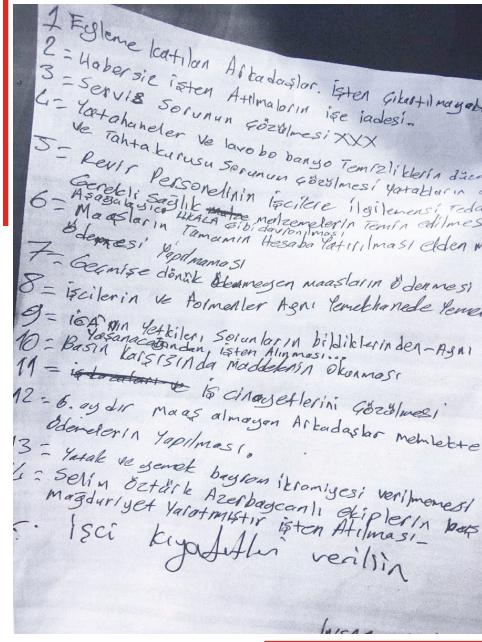 1 Eyleme katılan Arkadaşlar. işten Çıkartılmayab
2 = Habersiz işten Atılmaların işe iadesi.-
3 = Servis Sorunun Çözülmesi XXX
4 = Yatahaneler ve lavobo banyo Temizliklerin düz
ve Tahtakurusu Sorunun çözülmesi yatakların
5 = Revir Personelinin İşcilere ilgilemensi Teda
Gerekli Sağlık malzemelerin Temin edilmes
Aşağalayıcı gibi davranılması
6 = Maaşların Tamamın Hesaba Yatırılması elden m
Ödemesi Yapılmaması
7 = Geçmişe dönük ödenmeyen maaşların Ödenmesi
8 = işcilerin ve Formenler Aynı Yemekhanede Yeme
9 = iGA'nın Yetkileri Sorunların bildiklerinden-Aynı
Yaşanacağından, işten Alınması...
10 = Basın karşısında maddelerin Okunması
11 = iş cinayetlerini Çözülmesi
12 = 6. aydır maaş almayan Arkadaşlar memlekte
Ödemelerin Yapılması.
13 = Yatak ve yemek bayram ikramiyesi verilmemesi
= Selim Öztürk Azerbaycanlı ekiplerin baş
mağduriyet Yaratmıştır işten Atılması-
İşci kıyafetleri verilsin